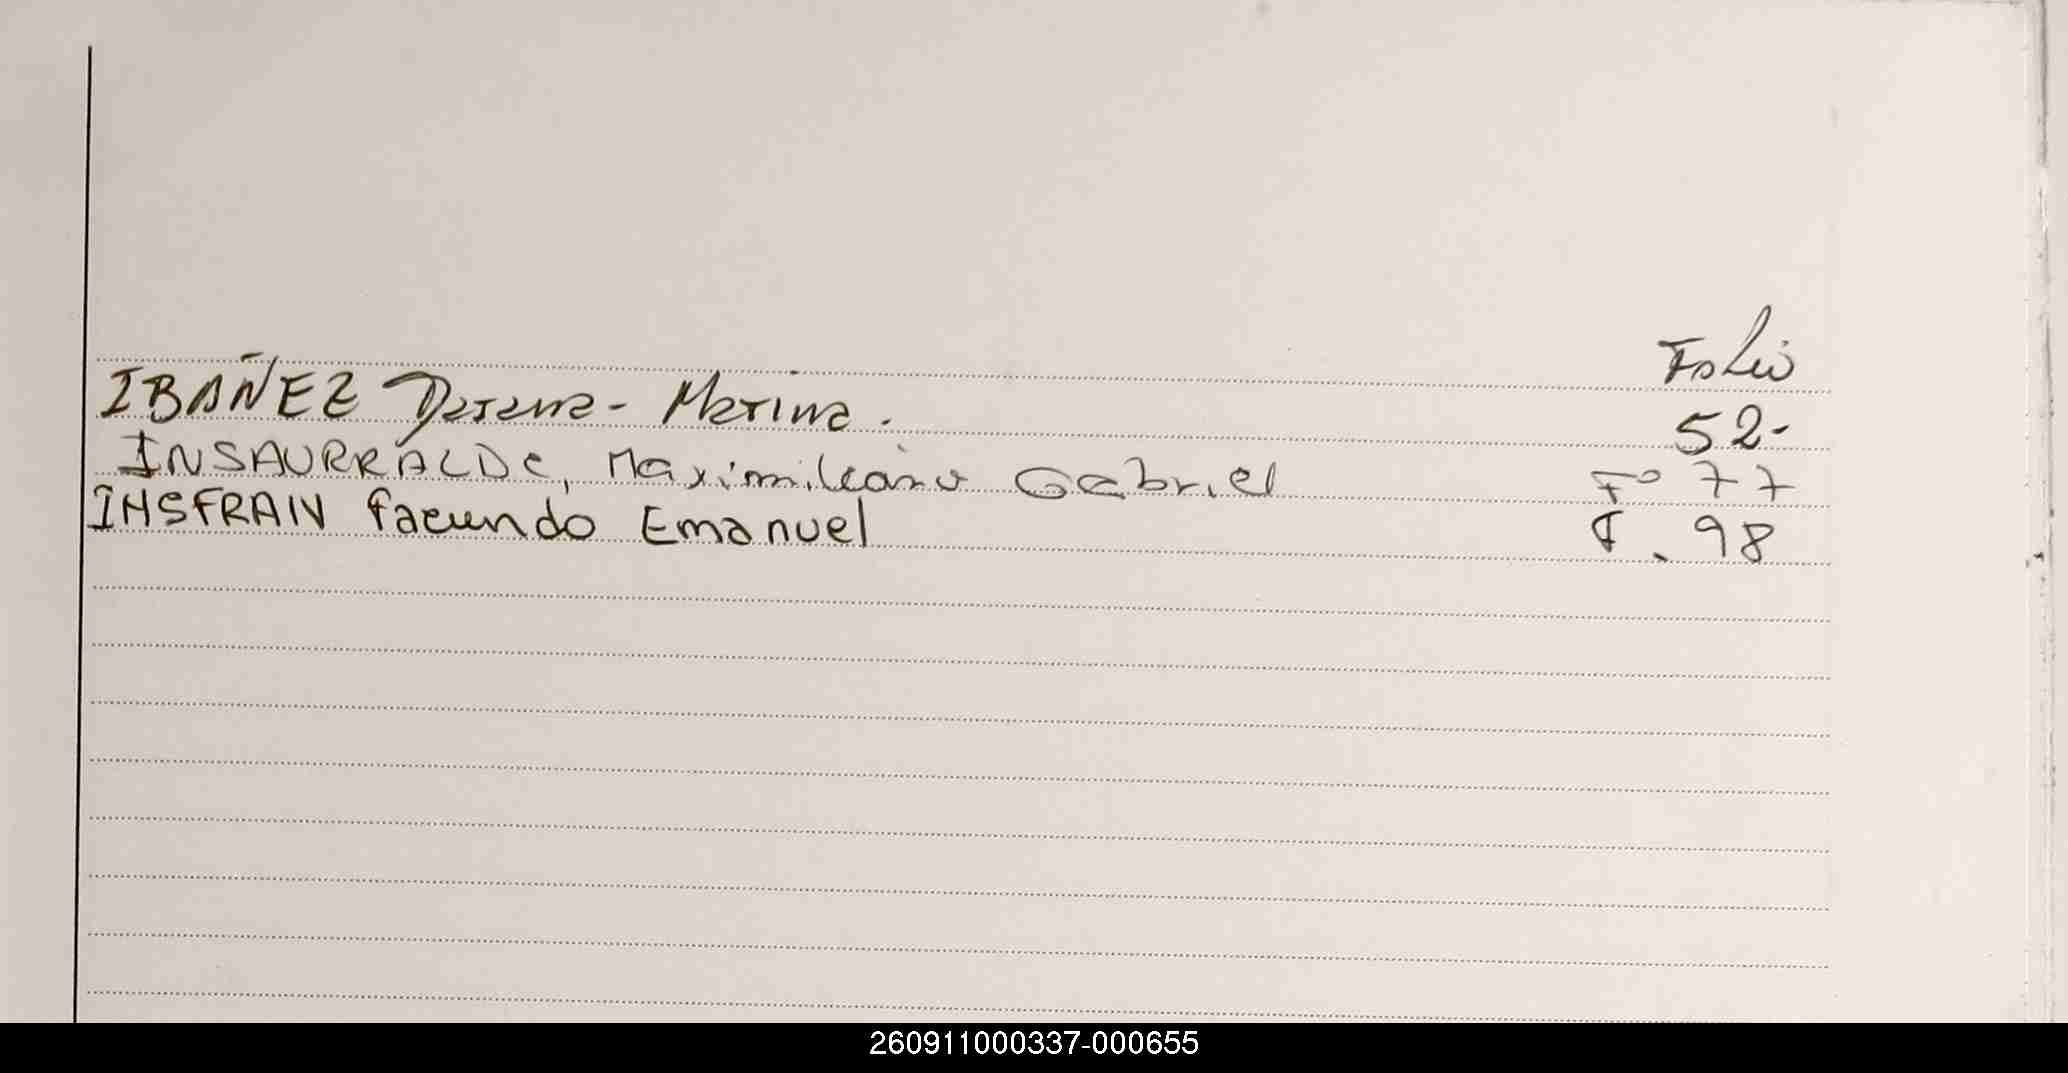 Folio
IBAÑEZ - Marina. 52-
INSAURRALDe, Maximiliano Gabriel Fº 77
INSFRAIN facundo Emanuel F. 98
260911000337-000655